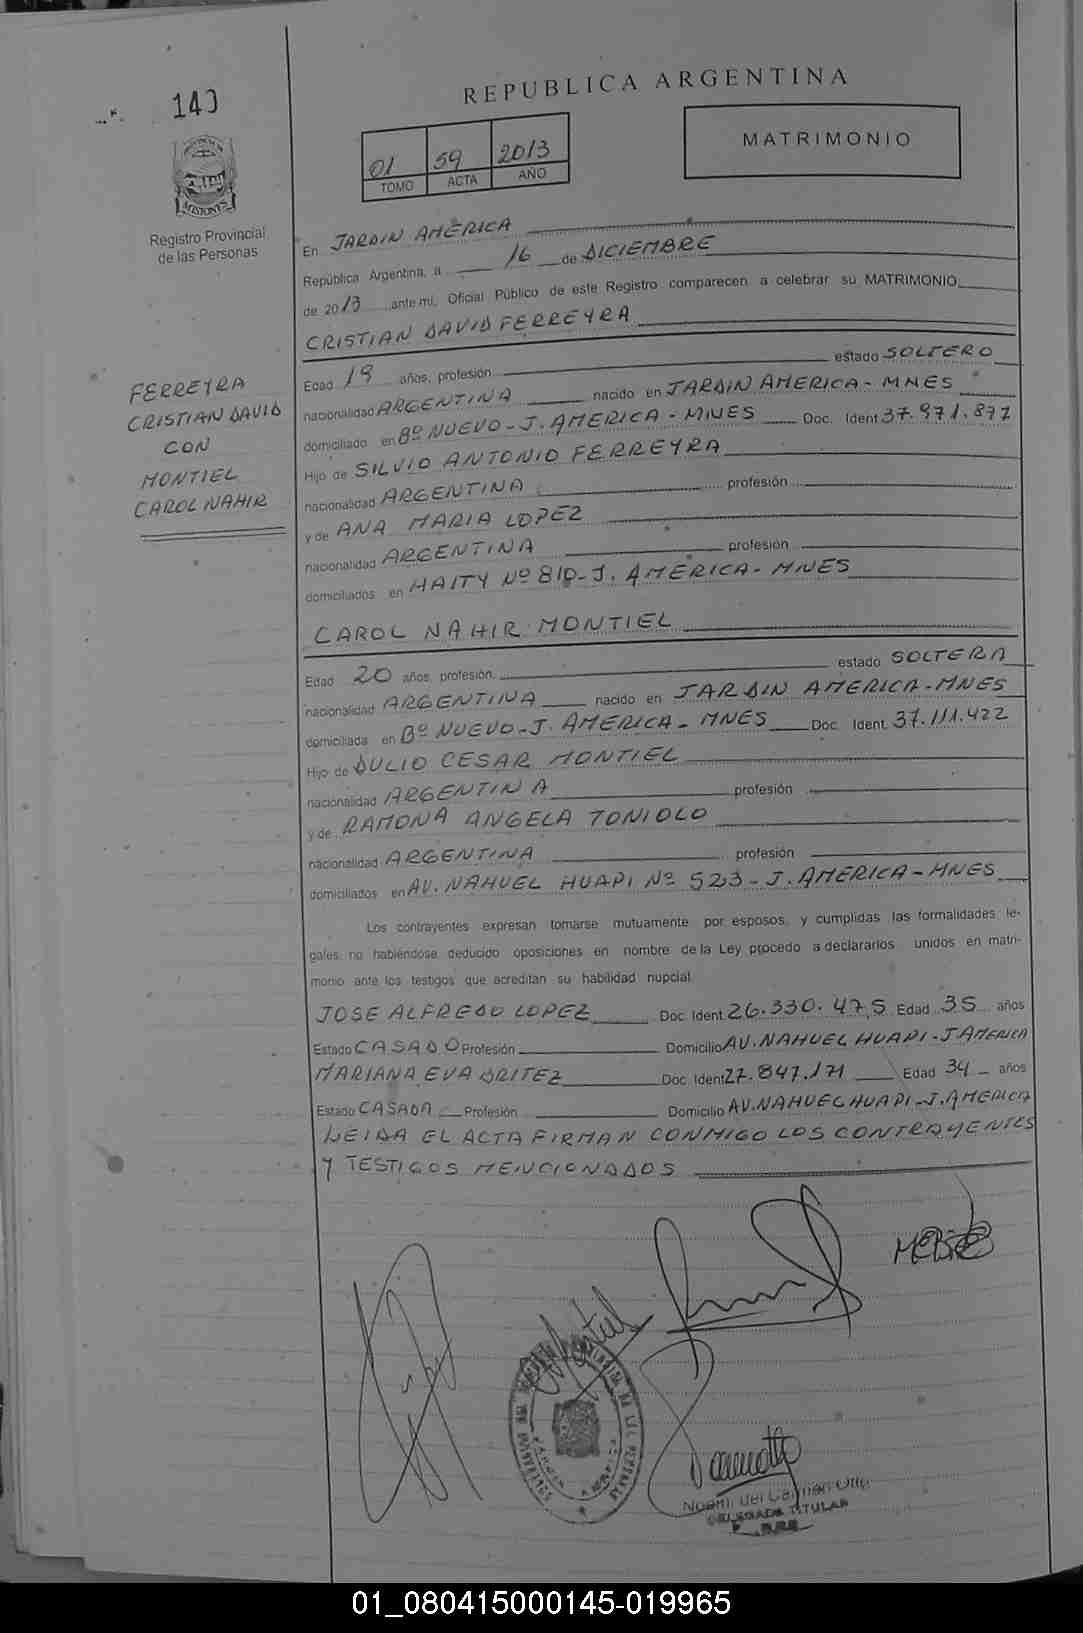 REPUBLICA ARGENTINA
140
01 59 2013
TOMO ACTA AÑO
MATRIMONIO
PROVINCIA DE
MISIONES
Registro Provincial
de las Personas
En JARDIN AMÉRICA
República Argentina, a 16 de DICIEMBRE
de 2013 ante mi, Oficial Público de este Registro comparecen a celebrar su MATRIMONIO
CRISTIAN DAVID FERREYRA
Edad 19 años, profesión estado SOLTERO
nacionalidad ARGENTINA nacido en JARDIN AMERICA - MNES
domiciliado en Bº NUEVO - J. AMERICA - MNES Doc. Ident 37.971.877
Hijo de SILVIO ANTONIO FERREYRA
nacionalidad ARGENTINA profesión
y de ANA MARIA LOPEZ
nacionalidad ARGENTINA profesión
domiciliados en HAITY Nº 810 - J. AMERICA - MNES
FERREYRA
CRISTIAN DAVID
CON
MONTIEL
CAROL NAHIR
CAROL NAHIR MONTIEL
Edad 20 años, profesión, estado SOLTERA
nacionalidad ARGENTINA nacido en JARDIN AMERICA - MNES
domiciliada en Bº NUEVO - J. AMERICA - MNES Doc. Ident. 37.111.422
Hijo de DULIO CESAR MONTIEL
nacionalidad ARGENTINA profesión
y de RAMONA ANGELA TONIOLO
nacionalidad ARGENTINA profesión
domiciliados en AV. NAHUEL HUAPI Nº 523 - J. AMERICA - MNES
Los contrayentes expresan tomarse mutuamente por esposos, y cumplidas las formalidades le-
gales, no habiéndose deducido oposiciones en nombre de la Ley procedo a declararlos unidos en matri-
monio ante los testigos que acreditan su habilidad nupcial.
JOSE ALFREDO LOPEZ Doc. Ident. 26.330.475 Edad 35 años
Estado CASADO Profesión Domicilio AV. NAHUEL HUAPI - J AMERICA
MARIANA EVA BRITEZ Doc. Ident 27.847.171 Edad 34 años
Estado CASADA Profesión Domicilio AV. NAHUEL HUAPI - J. AMERICA
LEIDA EL ACTA FIRMAN CONMIGO LOS CONTRAYENTES
Y TESTIGOS MENCIONADOS
Montiel
Noemi del Carmen
DELEGADA TITULAR
01_080415000145-019965